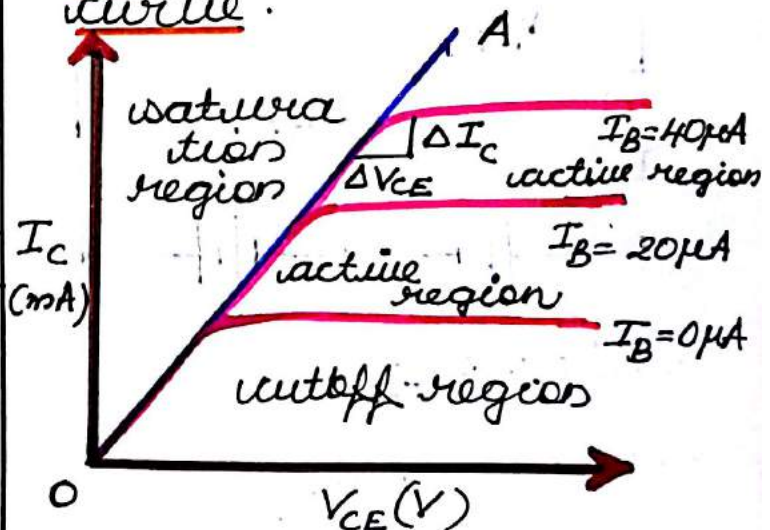 curve.
A.
satura
tion
region
ΔIC
ΔVCE
IB=40μA
active region
IC
(mA)
IB= 20μA
active
region
IB=0μA
cutoff region
O
VCE(V)